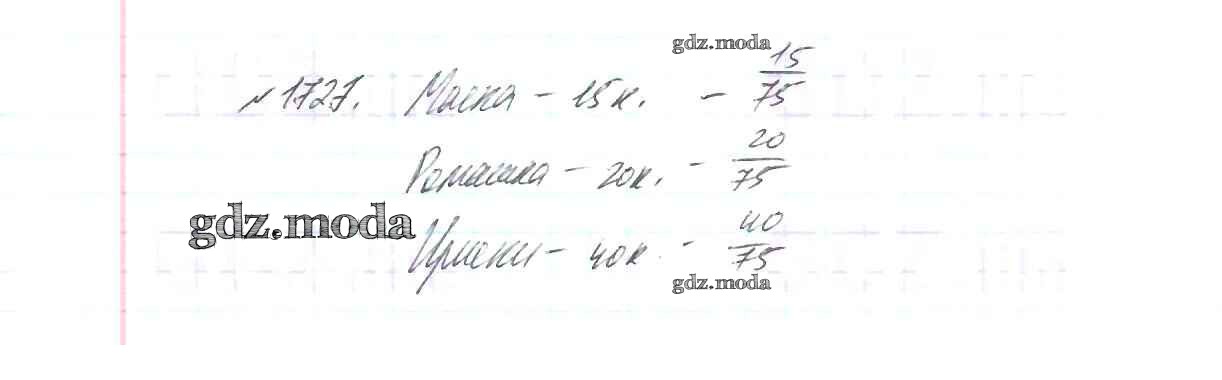 gdz.moda
№ 1727. Маска – 15 к. – 15/75
Ромашка – 20 к. – 20/75
gdz.moda
Ириски – 40 к. – 40/75
gdz.moda